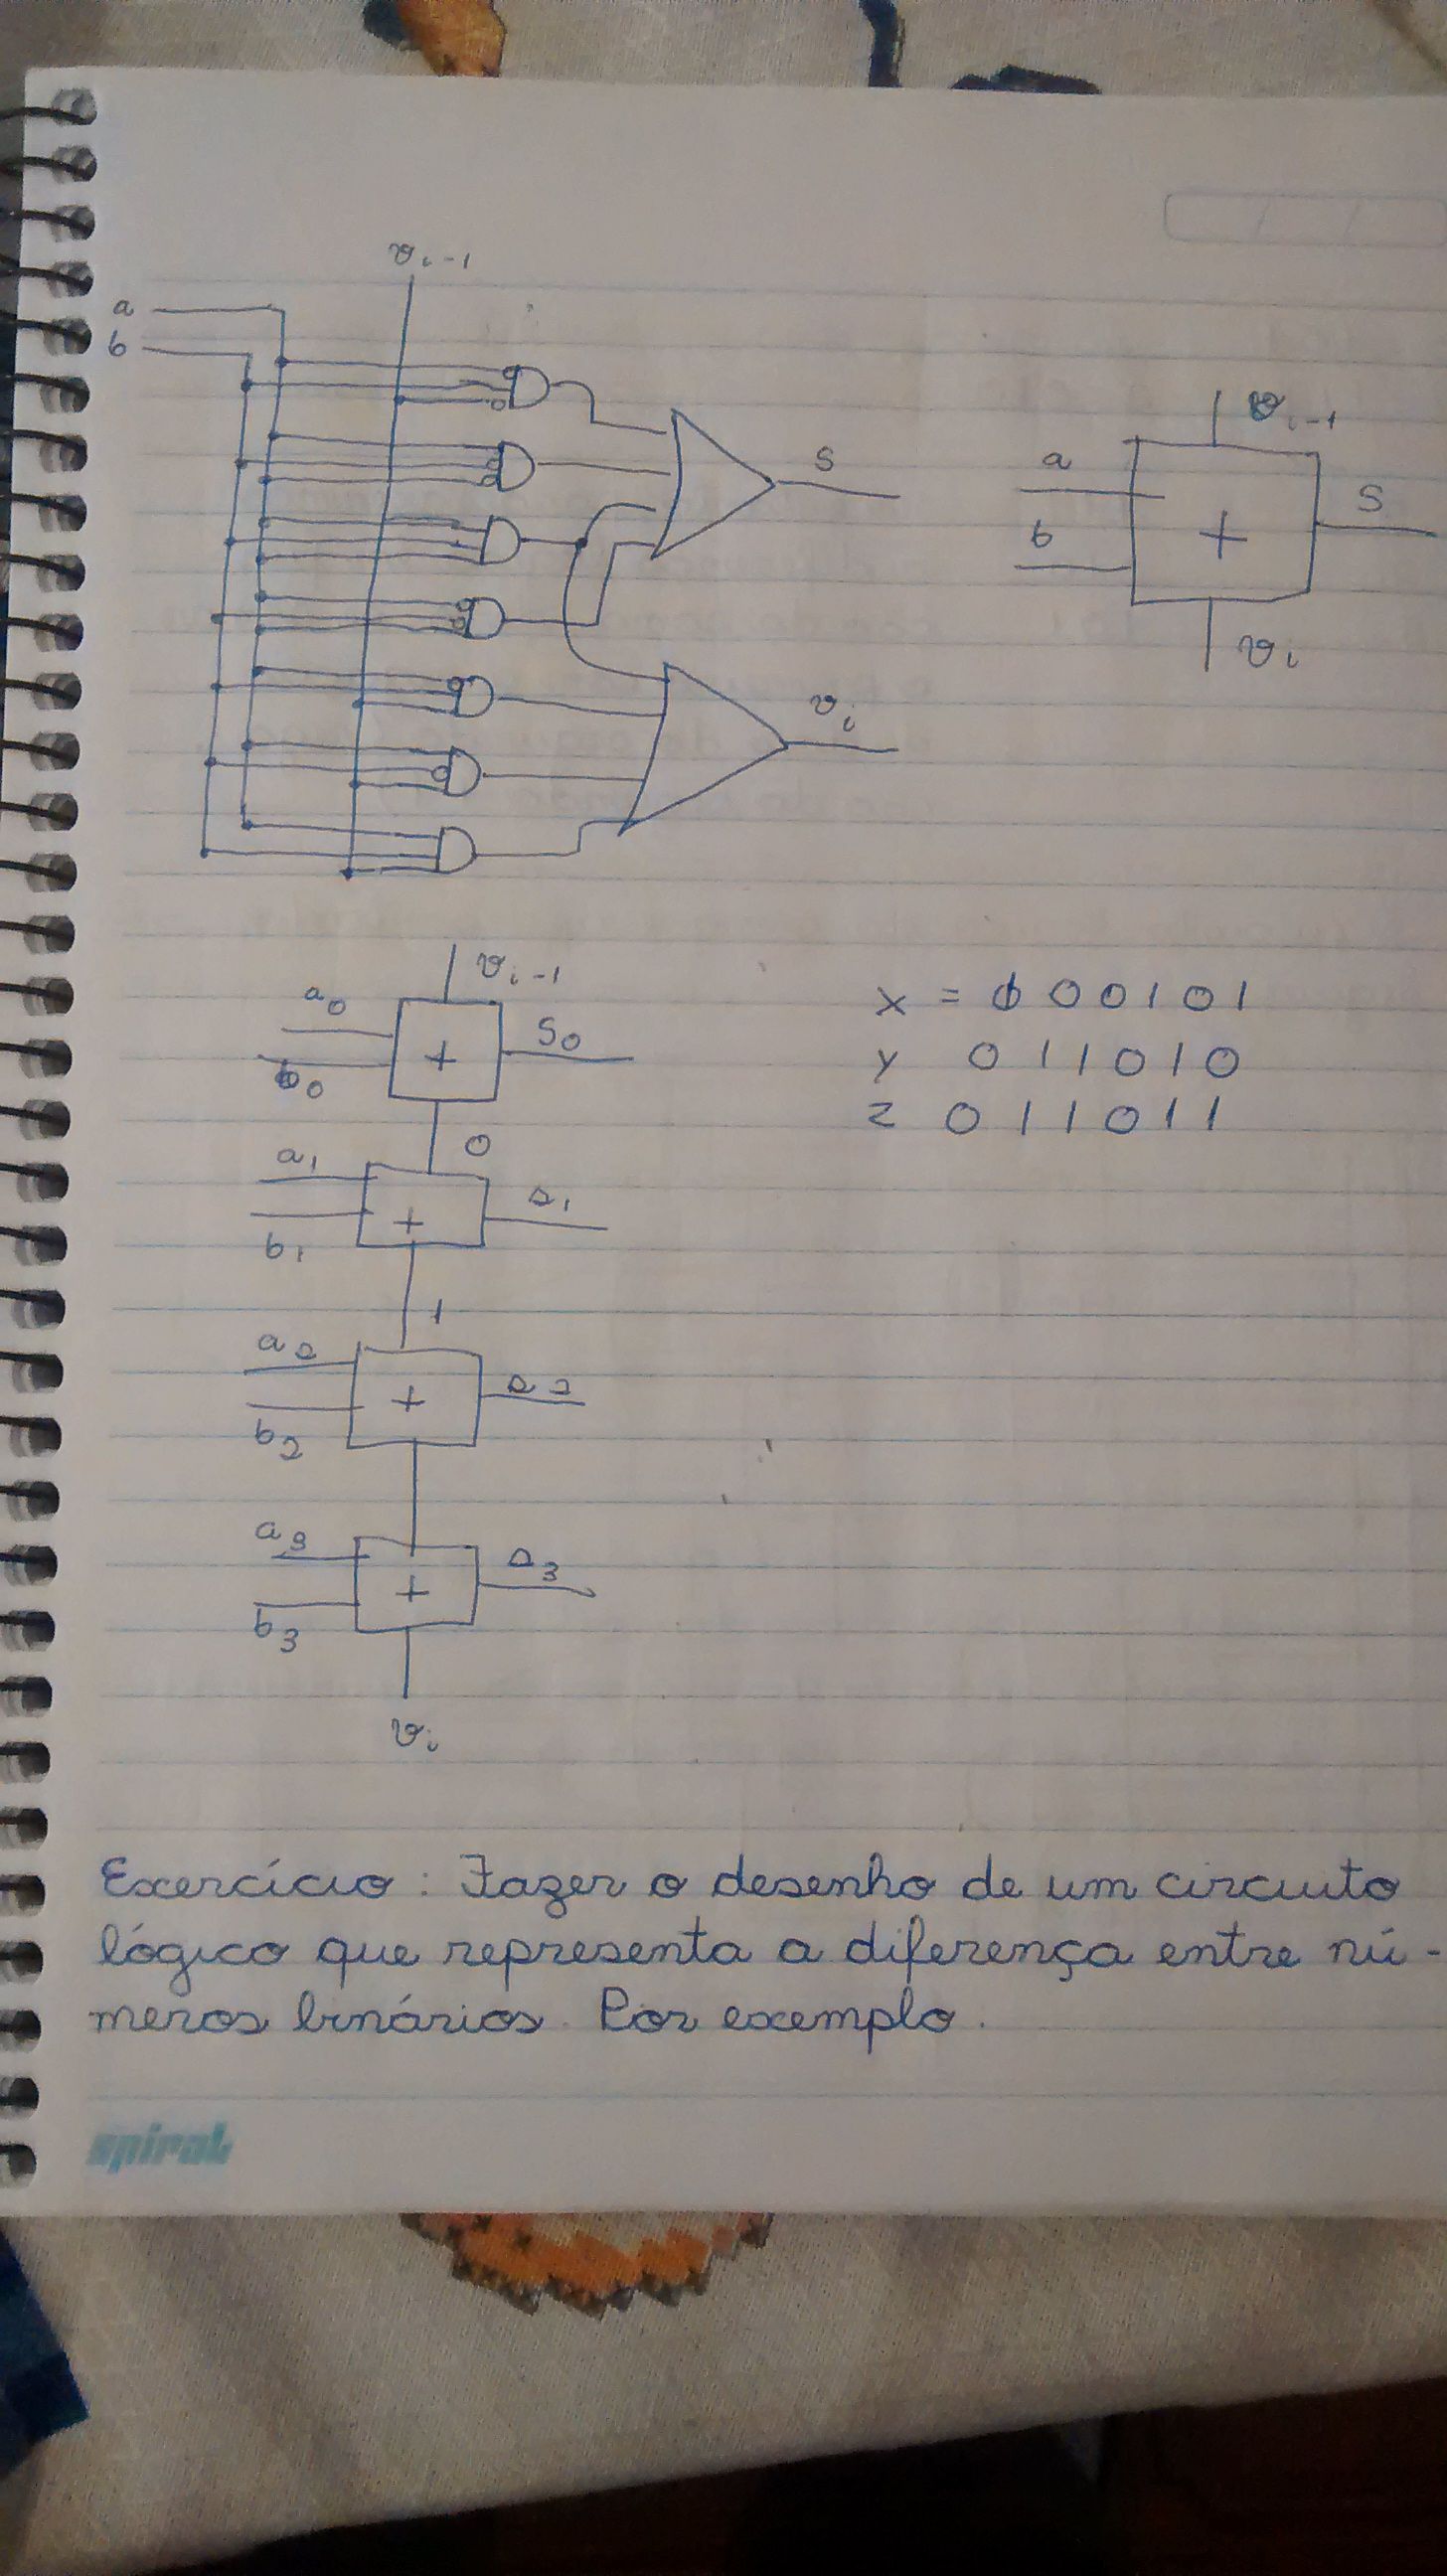 v i-1
a
b
S
v i
v i-1
a
b
+
S
v i
v i-1
a0
b0
+
S0
0
a1
b1
+
s1
1
a2
b2
+
s2
a3
b3
+
s3
v i
X = 000101
Y 011010
Z 011011
Exercício: Fazer o desenho de um circuito
lógico que representa a diferença entre nú-
meros binários. Por exemplo.
spiral